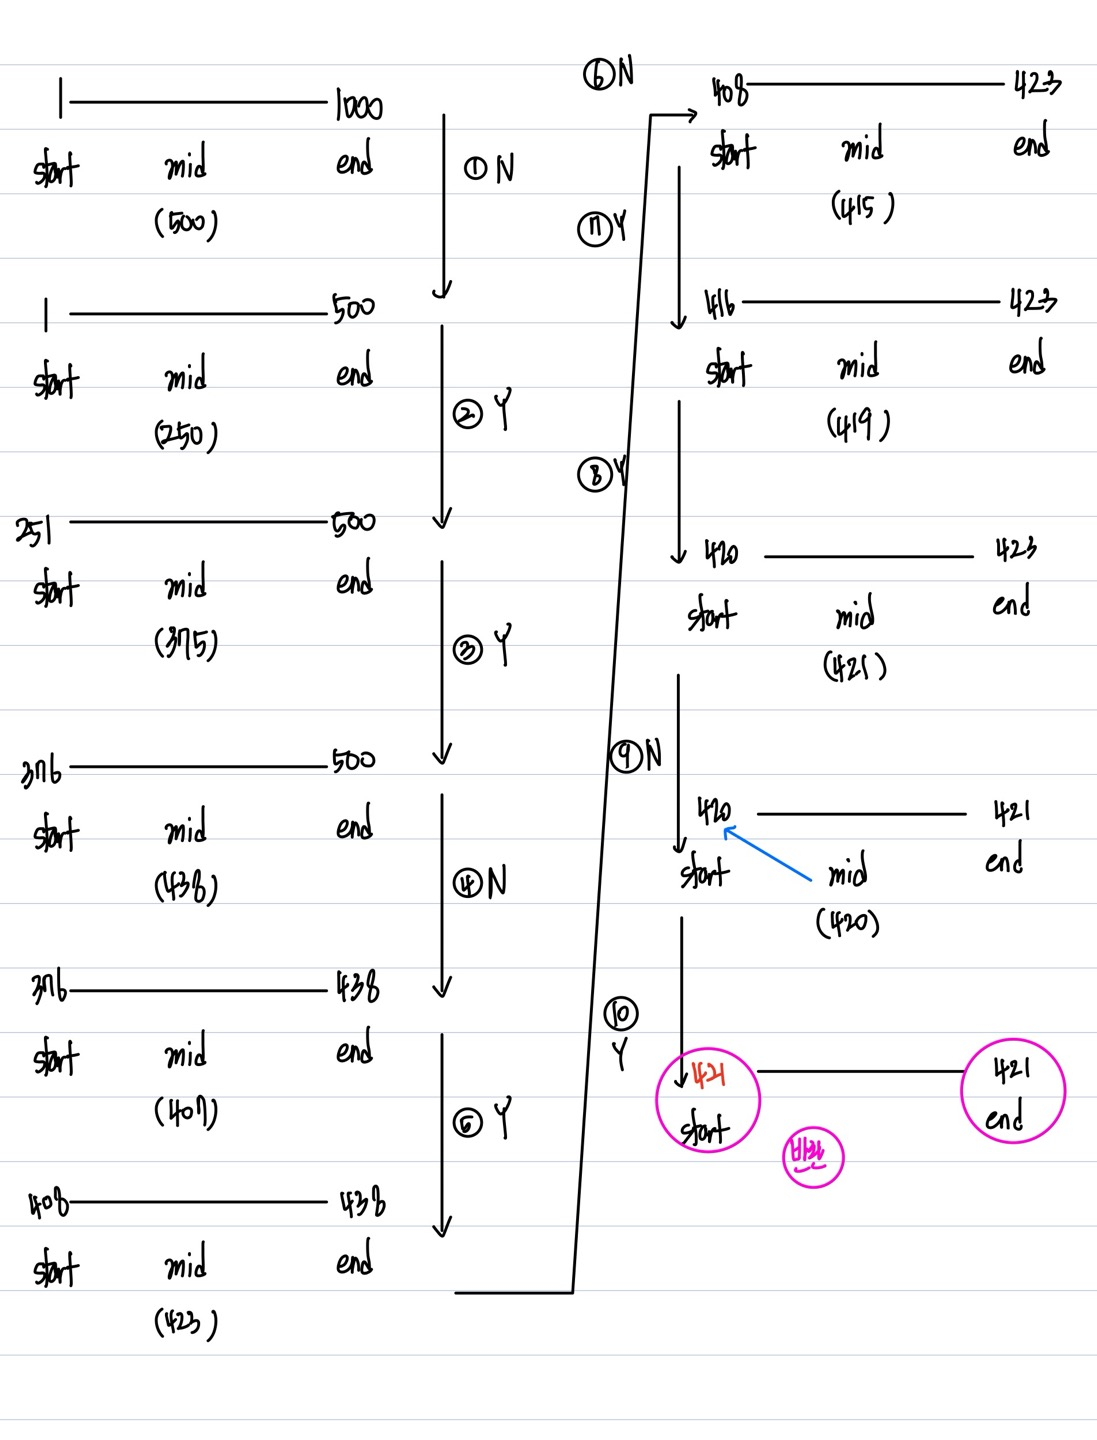 1 1000
start mid end
(500)
① N
1 500
start mid end
(250)
② Y
251 500
start mid end
(375)
③ Y
376 500
start mid end
(438)
④ N
376 438
start mid end
(407)
⑤ Y
408 438
start mid end
(423)
⑥ N
408 423
start mid end
(415)
⑦ Y
416 423
start mid end
(419)
⑧ Y
420 423
start mid end
(421)
⑨ N
420 421
start mid end
(420)
⑩
Y
421 421
start end
반환